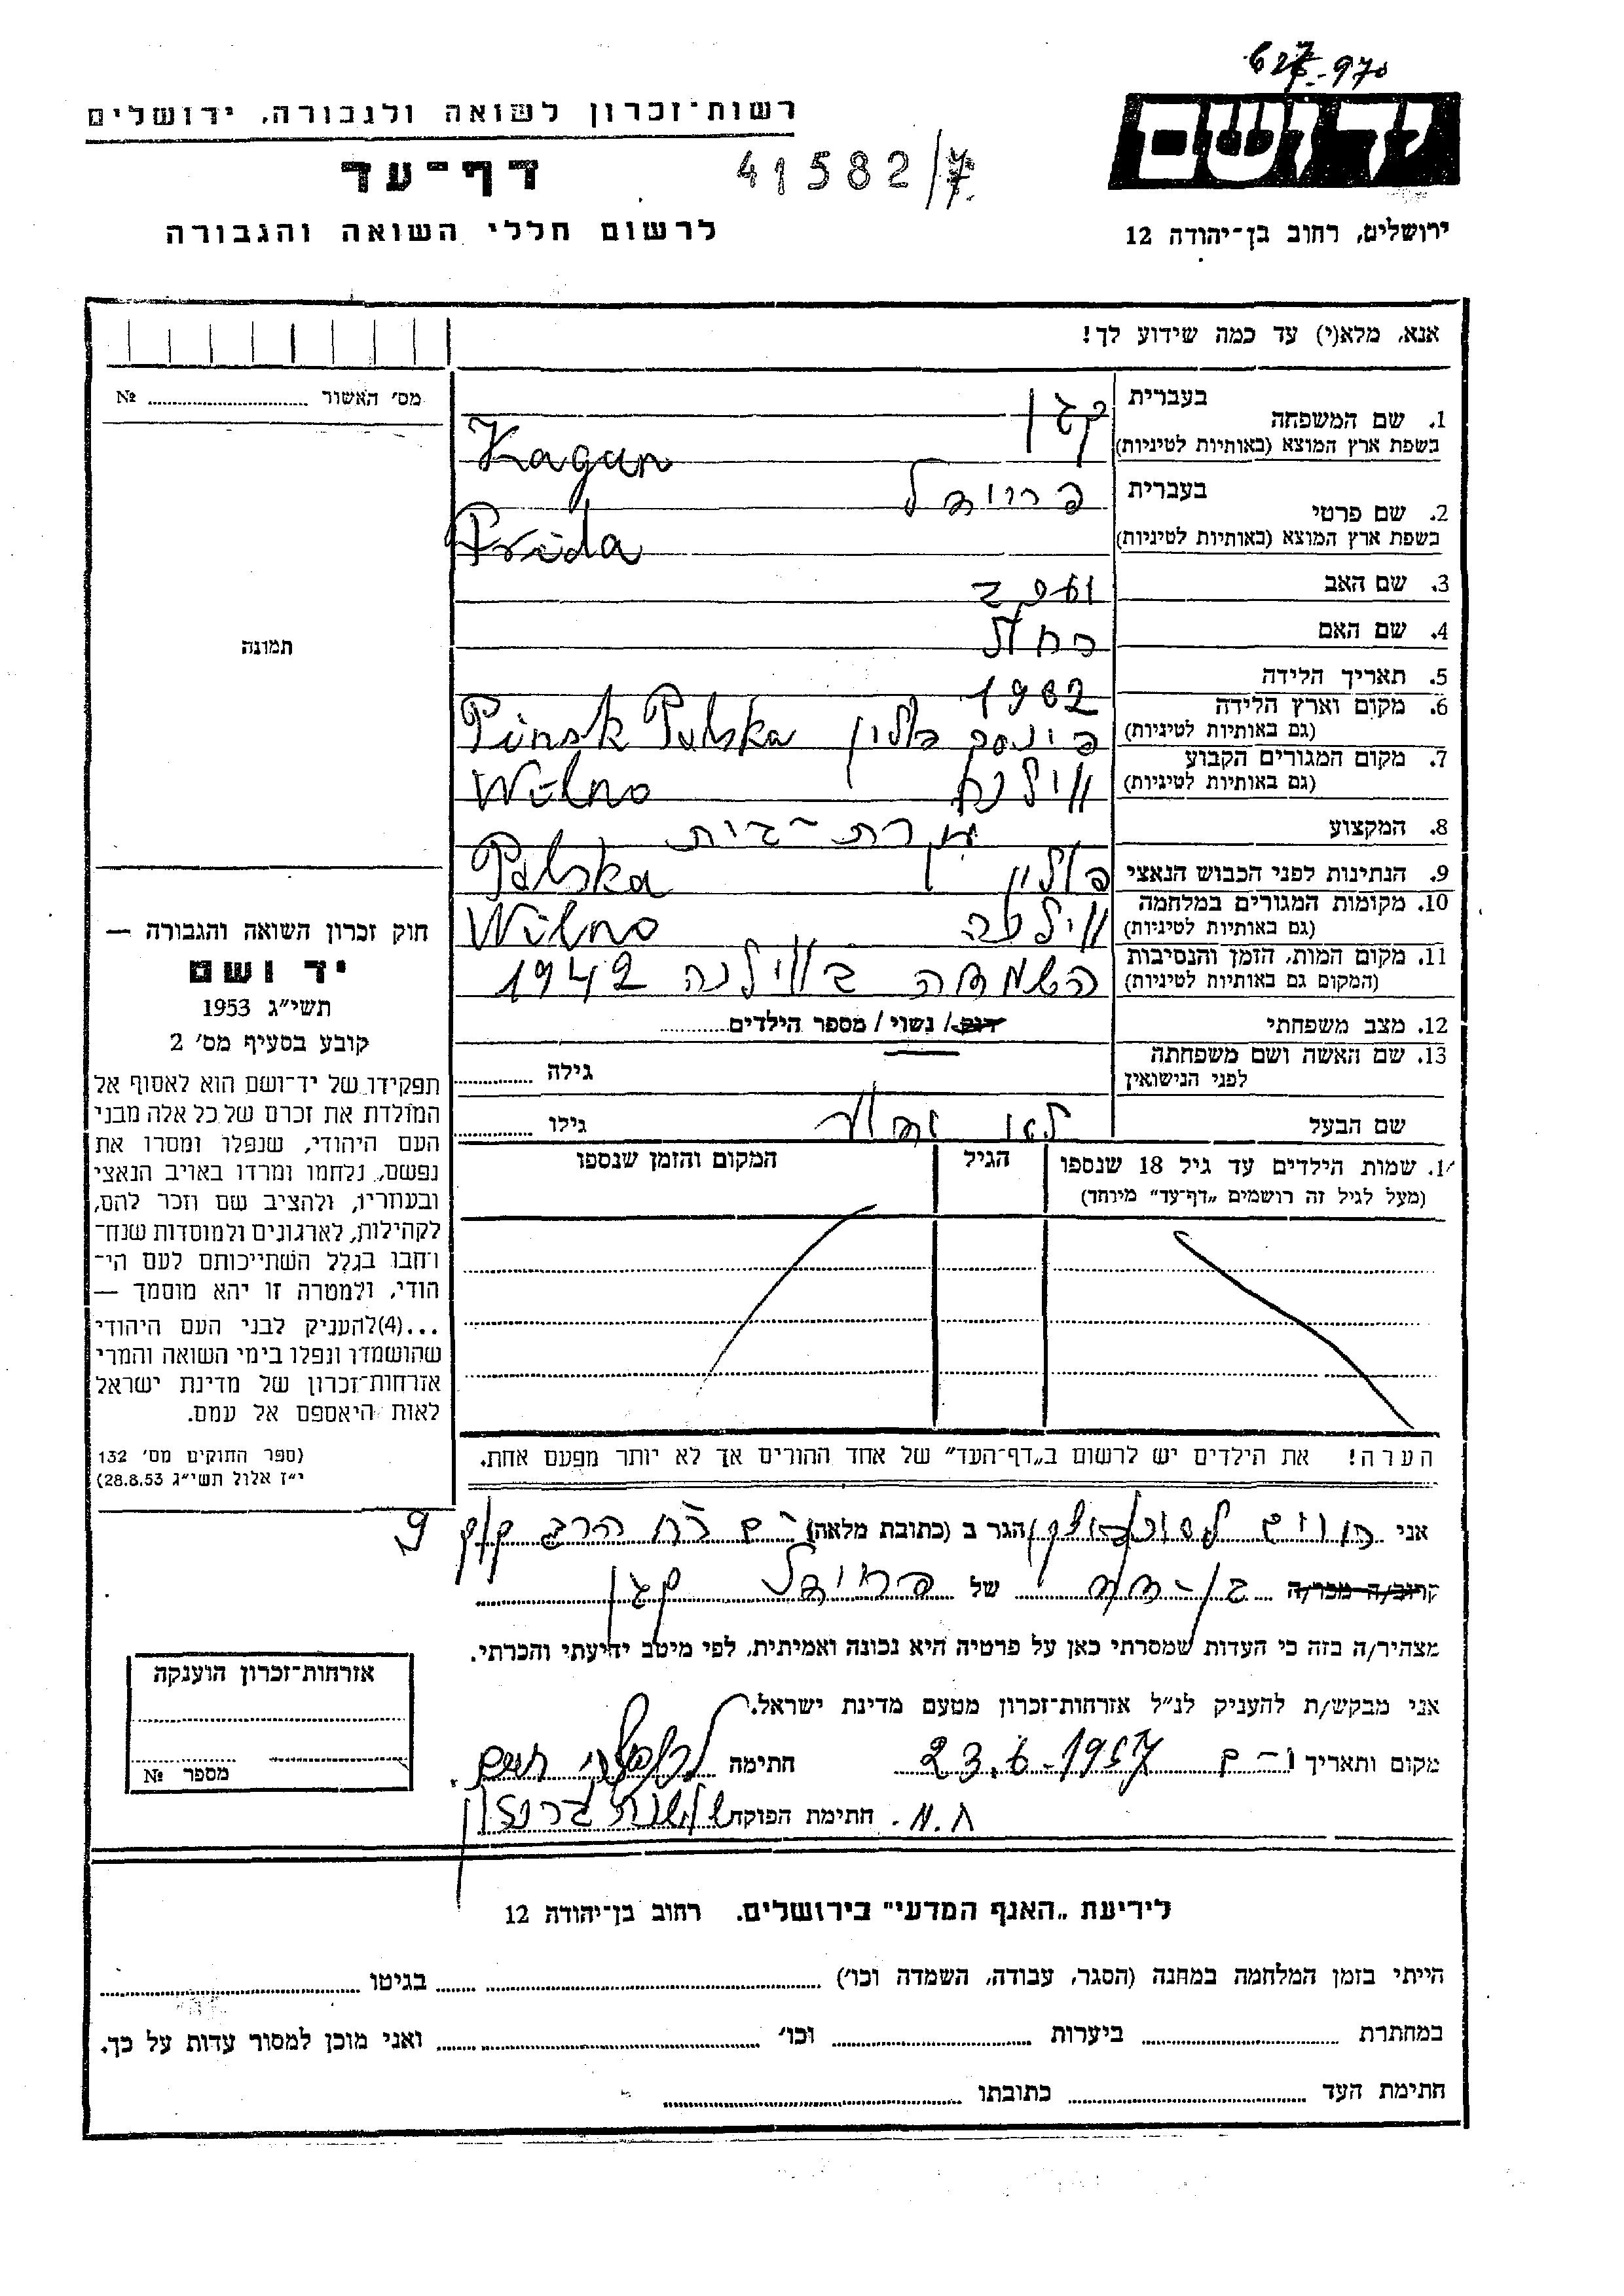 627-970
רשות-זכרון לשואה ולגבורה, ירושלים
יד ושם
דף-עד
41582/7
לרשום חללי השואה והגבורה
ירושלים, רחוב בן-יהודה 12
אנא, מלא(י) עד כמה שידוע לך!
מס' האשור № 
בעברית
1. שם המשפחה קגן
בשפת ארץ המוצא (באותיות לטיניות) Kagan
בעברית
2. שם פרטי פריידל
בשפת ארץ המוצא (באותיות לטיניות) Frida
3. שם האב
4. שם האם רחל
תמונה
5. תאריך הלידה 1902
6. מקום וארץ הלידה
(גם באותיות לטיניות) פינסק פולין Pinsk Polska
7. מקום המגורים הקבוע
(גם באותיות לטיניות) ווילנה Wilno
8. המקצוע עקרת-בית
9. הנתינות לפני הכבוש הנאצי פולין Polska
10. מקומות המגורים במלחמה
(גם באותיות לטיניות) ווילנה Wilno
11. מקום המות, הזמן והנסיבות
(המקום גם באותיות לטיניות) השמדה בווילנה 1942
12. מצב משפחתי רווק / נשוי / מספר הילדים
13. שם האשה ושם משפחתה
לפני הנישואין גילה
שם הבעל גילו
שמות הילדים עד גיל 18 שנספו הגיל המקום והזמן שנספו
(מעל לגיל זה רושמים „דף-עד" מיוחד)
חוק זכרון השואה והגבורה —
יד ושם
תשי״ג 1953
קובע בסעיף מס' 2
תפקידו של יד-ושם הוא לאסוף אל
המולדת את זכרם של כל אלה מבני
העם היהודי, שנפלו ומסרו את
נפשם, נלחמו ומרדו באויב הנאצי
ובעוזריו, ולהציב שם וזכר להם,
לקהילות, לארגונים ולמוסדות שנח-
רחבו בגלל השתייכותם לעם הי-
הודי, ולמטרה זו יהא מוסמך —
...(4)להעניק לבני העם היהודי
שהושמדו ונפלו בימי השואה והמרי
אזרחות-זכרון של מדינת ישראל
לאות היאספם אל עמם.
(ספר החוקים מס' 132
י״ז אלול תשי״ג 28.8.53)
הערה! את הילדים יש לרשום ב„דף-העד" של אחד ההורים אך לא יותר מפעם אחת.
אני חיים הגר ב (כתובת מלאה) הרב קוק 9
קרוב/ה מכר/ה בן-דוד של פריידל קגן
מצהיר/ה בזה כי העדות שמסרתי כאן על פרטיה היא נכונה ואמיתית, לפי מיטב ידיעתי והכרתי.
אני מבקש/ת להעניק לנ״ל אזרחות-זכרון מטעם מדינת ישראל.
מקום ותאריך י-ם 23.6.1957 חתימה חיים
חתימת הפוקד
אזרחות-זכרון הוענקה
מספר №
לידיעת „האגף המדעי" בירושלים, רחוב בן-יהודה 12
הייתי בזמן המלחמה במחנה (הסגר, עבודה, השמדה וכו') בגיטו
במחתרת ביערות וכו' ואני מוכן למסור עדות על כך.
חתימת העד כתובתו